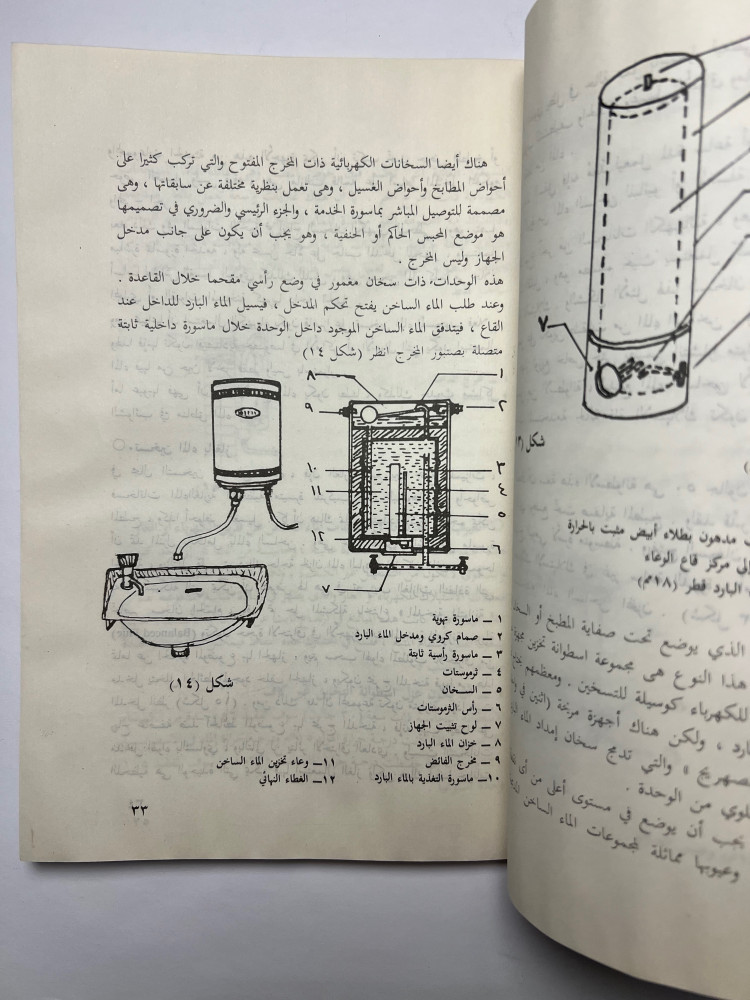 هناك أيضا السخانات الكهربائية ذات المخرج المفتوح والتي تركب كثيرا على
أحواض المطابخ وأحواض الغسيل ، وهى تعمل بنظرية مختلفة عن سابقاتها ، وهى
مصممة للتوصيل المباشر بماسورة الخدمة ، والجزء الرئيسي والضروري في تصميمها
هو موضع المحبس الحاكم أو الحنفية ، وهو يجب أن يكون على جانب مدخل
الجهاز وليس المخرج .
هذه الوحدات ذات سخان مغمور في وضع رأسي مقحما خلال القاعدة .
وعند طلب الماء الساخن يفتح تحكم المدخل ، فيسيل الماء البارد للداخل عند
القاع ، فيتدفق الماء الساخن الموجود داخل الوحدة خلال ماسورة داخلية ثابتة
متصلة بصنبور المخرج انظر (شكل ١٤)
١
٨
٢
٩
٣
١٠
٤
١١
٥
١٢
٦
٧
١ ــ ماسورة تهوية
٢ ــ صمام كروي ومدخل الماء البارد
٣ ــ ماسورة رأسية ثابتة
٤ ــ ثرموستات
٥ ــ السخان
٦ ــ رأس الثرموستات
٧ ــ لوح تثبيت الجهاز
٨ ــ خزان الماء البارد
٩ ــ مخرج الفائض
١٠ــ ماسورة التغذية بالماء البارد
١١ــ وعاء تخزين الماء الساخن
١٢ــ الغطاء النهائي
شكل (١٤)
٣٣
٧
شكل
مدهون بطلاء أبيض مثبت بالحرارة
إلى مركز قاع الوعاء
البارد قطر (١٨مم)
الذي يوضع تحت صفاية المطبخ أو
هذا النوع هى مجموعة اسطوانة تخزين
للكهرباء كوسيلة للتسخين . ومعظمهم
، ولكن هناك أجهزة مربحة (اثنين في
» والتي تدمج سخان إمداد الماء
من الوحدة .
يجب أن يوضع في مستوى أعلى من أى
وعيوبها مماثلة لمجموعات الماء الساخن